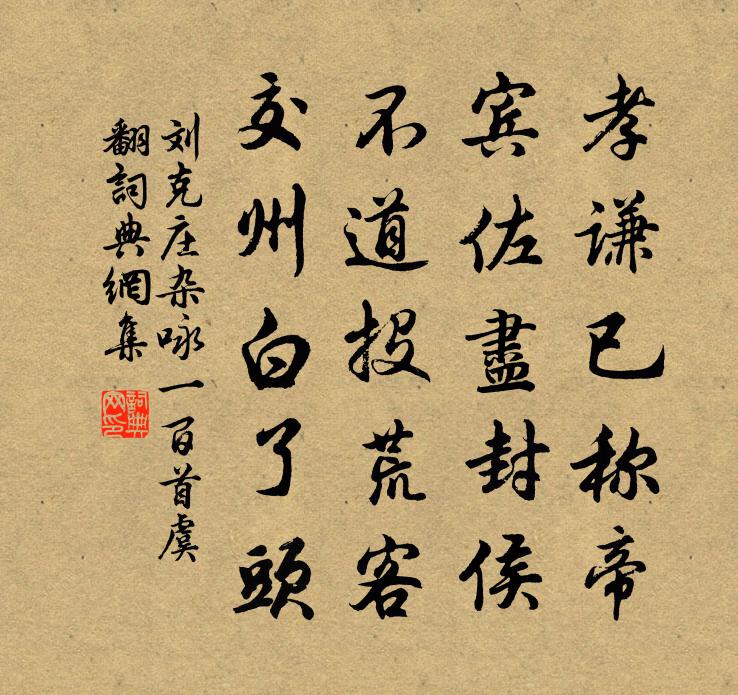 孝谦已称帝
宾佐盡封侯
不道投荒客
交州白了頭
刘克庄杂咏一百首虞
翻詞典網集
詞典
网印